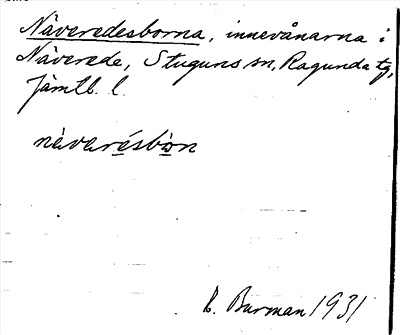 Näveredesborna, innevånarna i
Näverede, Stuguns sn, Ragunda tg,
Jämtl. l.
nàverésbòn
B. Burman 1931